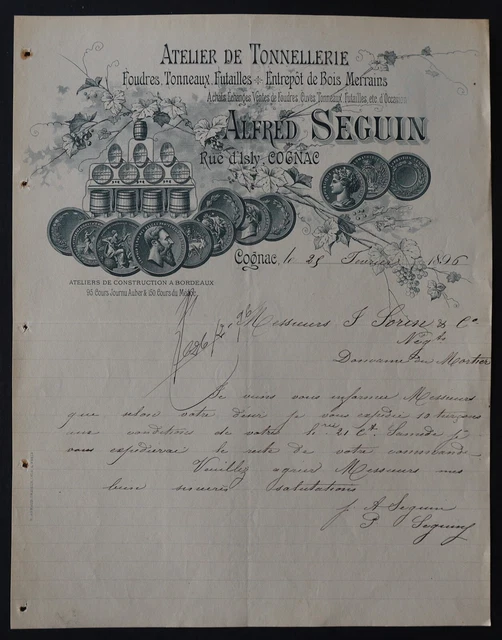 ATELIER DE TONNELLERIE
Foudres, Tonneaux, Futailles - Entrepôt de Bois Merrains
Achats, Echanges, Ventes de Foudres, Cuves, Tonneaux, Futailles, etc. d'Occasion
ALFRED SEGUIN
Rue d'Isly, COGNAC
ATELIERS DE CONSTRUCTION A BORDEAUX
95 Cours Journu Auber & 150 Cours du Médoc
Cognac, le 25 Fevrier 1896
Messieurs J Sorin & Co
Négts
Domaine du Mortier
Je viens vous informer Messieurs
que selon votre désir je vous expédie 10 tierçons
aux conditions de votre 21 Ct. Samedi je
vous expedierai le reste de votre commande
Veuillez agréer Messieurs mes
bien sincères salutations
p. A Seguin
P Seguin